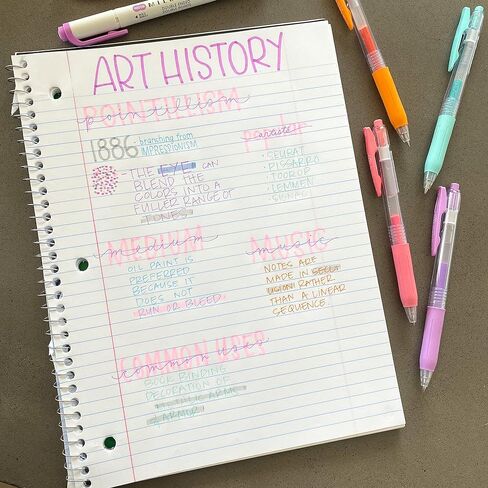 ART HISTORY
POINTILLISM
pointillism
1886 - branching from
IMPRESSIONISM
artists
• SEURAT
• PISSARRO
• TOOROP
• LEMMEN
• SIGNAC
- THE EYE CAN
BLEND THE
COLORS INTO A
FULLER RANGE OF
TONES
MEDIUM
medium
OIL PAINT IS
PREFERRED
BECAUSE IT
DOES NOT
RUN OR BLEED.
MUSIC
music
NOTES ARE
MADE IN
RATHER
THAN A LINEAR
SEQUENCE
COMMON USES
common uses
BOOK BINDING
DECORATION OF
METALLIC ARMS
& ARMOR